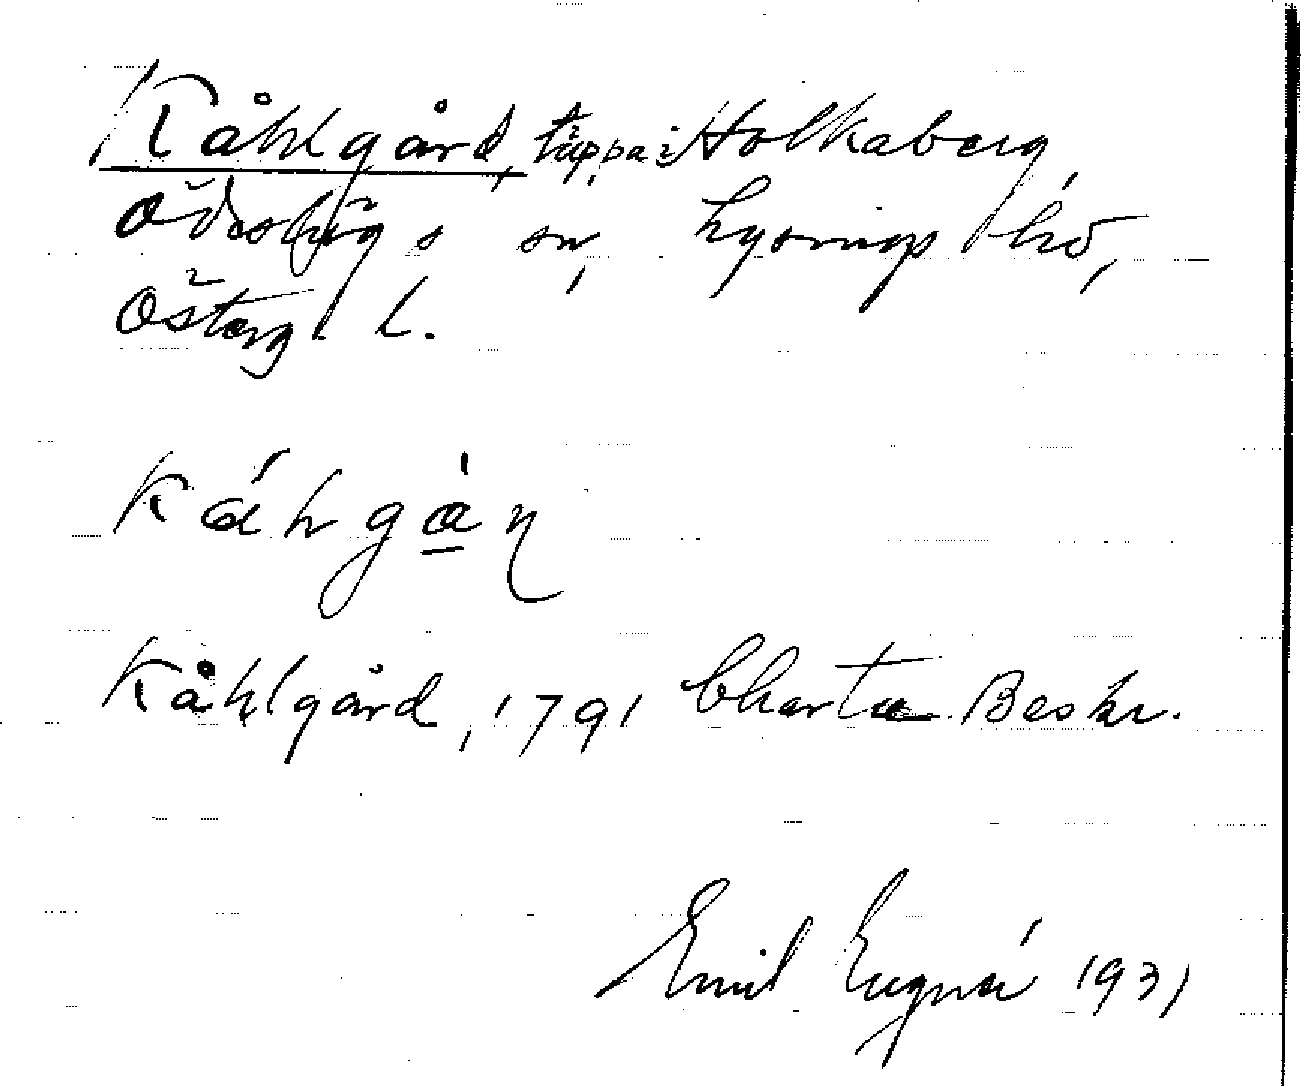 Kåhlgård, täppa i Holkaberg
Ödeshögs sn, Lysings hd,
Österg. l.
Kåhlgård, 1791 Charta Beskr.
Emil 1931